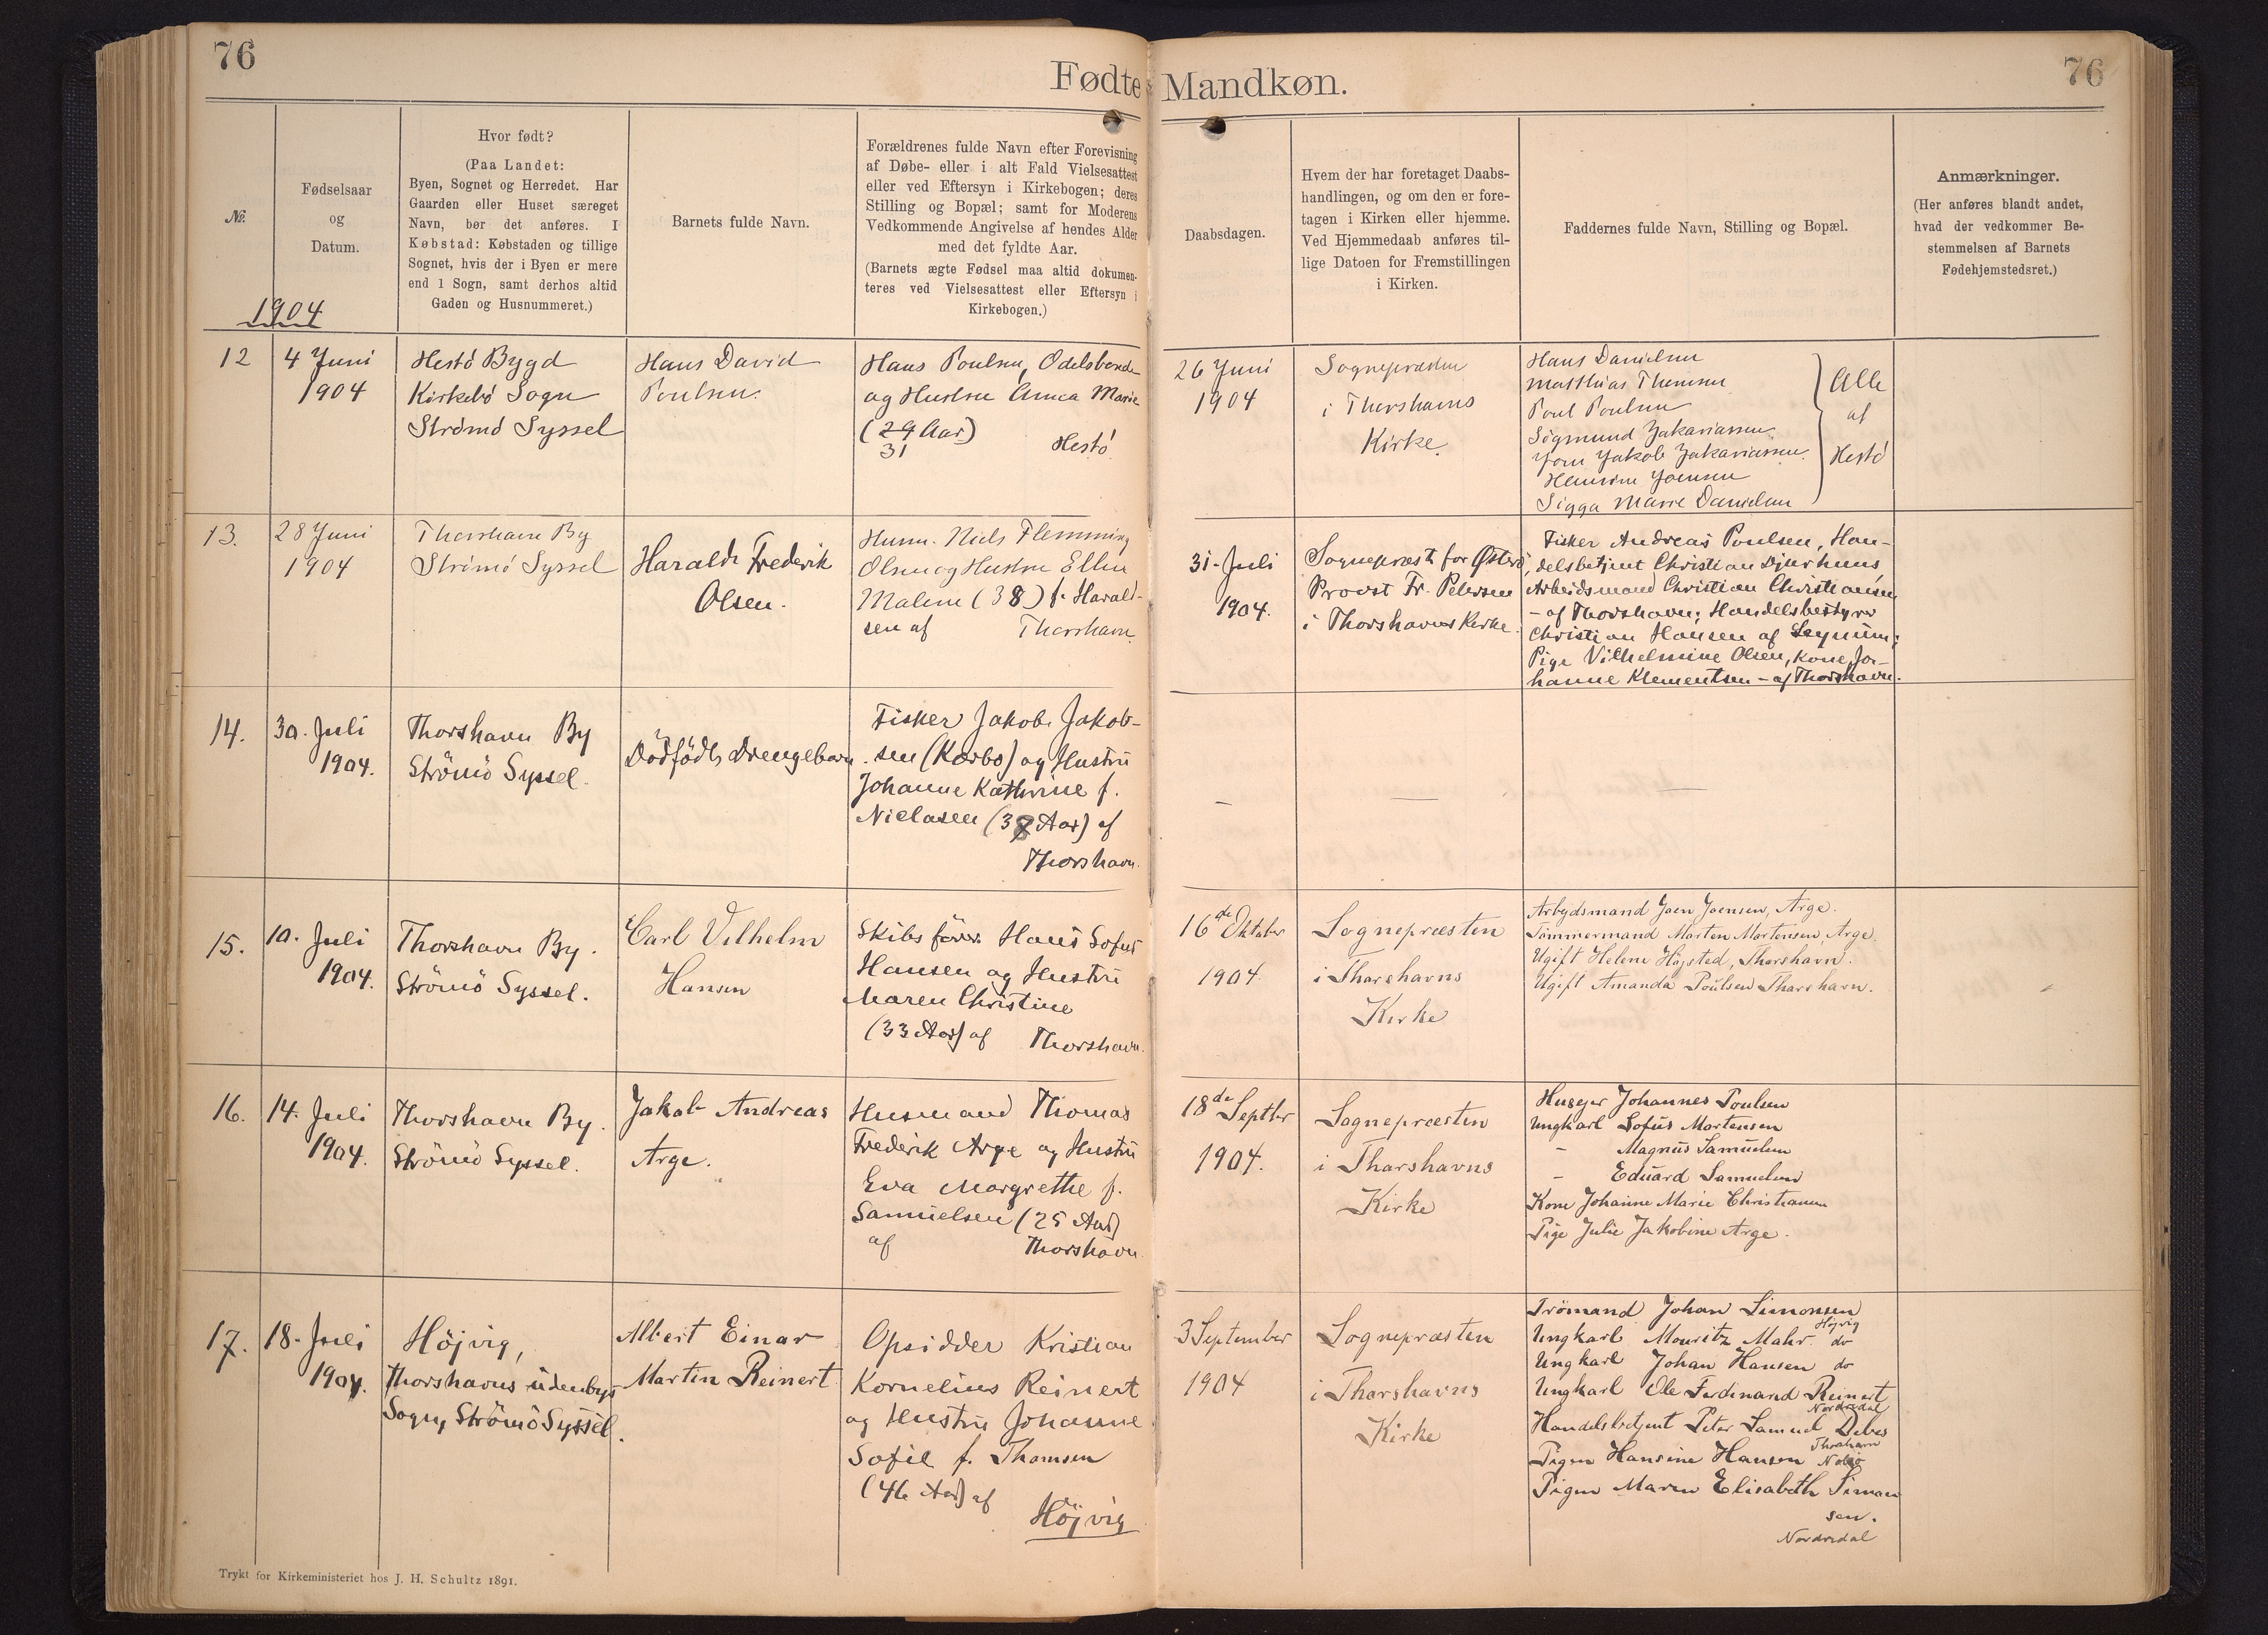 76
Fødte Mandkøn.
76
№
Fødselsaar
og
Datum.
Hvor født?
(Paa Landet:
Byen, Sognet og Herredet. Har
Gaarden eller Huset særeget
Navn, bør det anføres. I
Købstad: Købstaden og tillige
Sognet, hvis der i Byen er mere
end 1 Sogn, samt derhos altid
Gaden og Husnummeret.)
Barnets fulde Navn.
Forældrenes fulde Navn efter Forevisning
af Døbe- eller i alt Fald Vielsesattest
eller ved Eftersyn i Kirkebogen; deres
Stilling og Bopæl; samt for Moderens
Vedkommende Angivelse af hendes Alder
med det fyldte Aar.
(Barnets ægte Fødsel maa altid dokumen-
teres ved Vielsesattest eller Eftersyn i
Kirkebogen.)
Daabsdagen.
Hvem der har foretaget Daabs-
handlingen, og om den er fore-
tagen i Kirken eller hjemme.
Ved Hjemmedaab anføres til-
lige Datoen for Fremstillingen
i Kirken.
Faddernes fulde Navn, Stilling og Bopæl.
Anmærkninger.
(Her anføres blandt andet,
hvad der vedkommer Be-
stemmelsen af Barnets
Fødehjemstedsret.)
1904
12
4 Juni
1904
Hestö Bygd
Kirkebö Sogn
Strömö Syssel
Hans David
Poulsen.
Hans Poulsen, Odelsbonde
og Hustru Anna Marie
(29 Aar)
31
Hestö
26 Juni
1904
Sognepræsten
i Thorshavns
Kirke.
Hans Danielsen
Matthias Thomsen
Poul Poulsen
Sigmund Zakariassen
Joen Jakob Zakariassen
Henrine Joensen
Sigga Marie Danielsen
Alle
af
Hestö
13.
28 Juni
1904
Thorshavn By
Strömö Syssel
Harald Frederik
Olsen.
Husm. Niels Flemming
Olsen og Hustru Ellen
Malene (38) f. Harald-
sen af Thorshavn
31- Juli
1904.
Sognepræst for Österö,
Provst Fr. Petersen
i Thorshavns Kirke.
Fisker Andreas Poulsen, Han-
delsbetjent Christian Djurhuus
Arbeidsmand Christian Christiansen
- af Thorshavn; Handelsbestyrer
Christian Hansen af Leynum;
Pige Vilhelmine Olsen, Kone Jo-
hanne Klementsen - af Thorshavn.
14.
30. Juli
1904.
Thorshavn By
Strömö Syssel.
Dödfödt Drengebarn.
Fisker Jakob Jakob-
sen (Kærbo) og Hustru
Johanne Kathrine f.
Niclasen (38 Aar) af
Thorshavn.
15.
10. Juli
1904.
Thorshavn By.
Strömö Syssel.
Carl Vilhelm
Hansen
Skibsfører Hans Sofus
Hansen og Hustru
Maren Christine
(33 Aar) af Thorshavn.
16de Oktober
1904
Sognepræsten
i Thorshavns
Kirke
Arbejdsmand Joen Joensen, Arge.
Tömmermand Morten Mortensen, Arge.
Ugift Helene Höjsted, Thorshavn.
Ugift Amanda Poulsen Thorshavn.
16.
14. Juli
1904.
Thorshavn By.
Strömö Syssel.
Jakob Andreas
Arge.
Husmand Thomas
Frederik Arge og Hustru
Eva Margrethe f.
Samuelsen (25 Aar)
af Thorshavn
18de Septbr
1904.
Sognepræsten
i Thorshavns
Kirke
Husejer Johannes Poulsen
Ungkarl Sofus Mortensen
- Magnus Samuelsen
- Eduard Samuelsen
Kone Johanne Marie Christiansen
Pige Julie Jakobine Arge.
17.
18. Juli
1904.
Höjvig,
Thorshavns udenbys
Sogn, Strömö Syssel.
Albert Einar
Martin Reinert
Opsidder Kristian
Kornelius Reinert
og Hustru Johanne
Sofie f. Thomsen
(46 Aar) af
Höjvig
3 September
1904
Sognepræsten
i Thorshavns
Kirke
Trömand Johan Simonsen
Höjvig
Ungkarl Mouritz Mahr do
Ungkarl Johan Hansen do
Ungkarl Ole Ferdinand Reinert
Nordredal
Handelsbetjent Peter Samuel Debes
Thorshavn
Pigen Hansine Hansen Nolsö
Pigen Maren Elisabeth Simon
sen.
Nordredal
Trykt for Kirkeministeriet hos J. H. Schultz 1891.